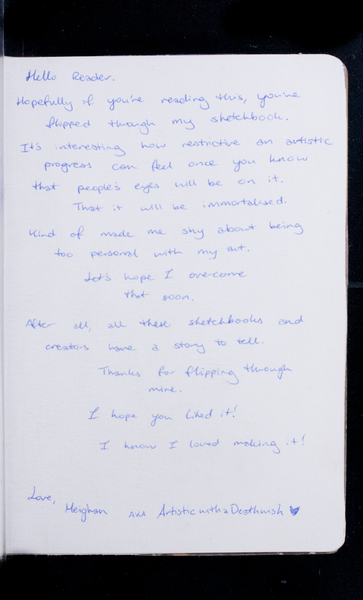 Hello Reader.
Hopefully if you're reading this, you've
flipped through my sketchbook.
It's interesting how restrictive an artistic
progress can feel once you know
that people's eyes will be on it.
That it will be immortalised.
Kind of made me shy about being
too personal with my art.
Let's hope I overcome
that soon.
After all, all these sketchbooks and
creators have a story to tell.
Thanks for flipping through
mine.
I hope you liked it!
I know I loved making it!
Love,
Meighan AKA Artisticwith a Deathwish